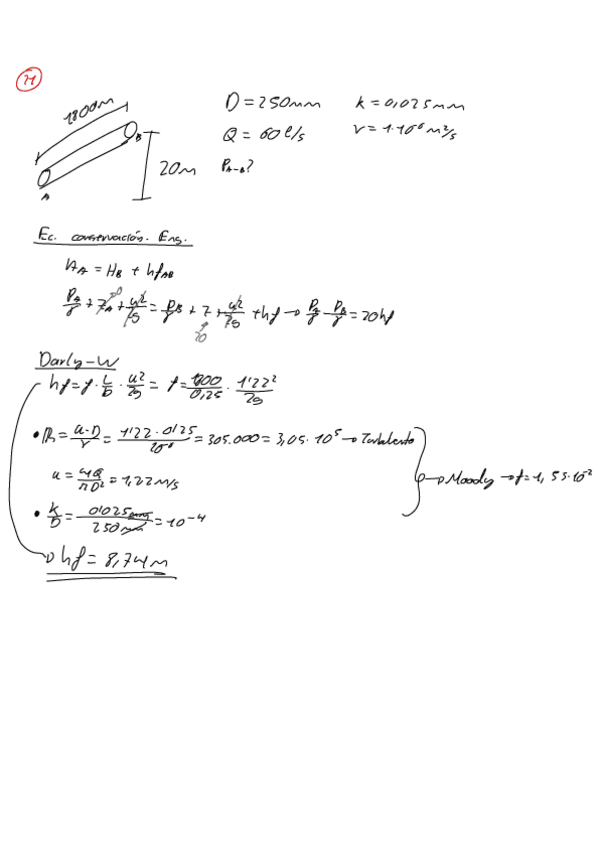 21
1800m
B
A
20m
D = 250mm k = 0,025mm
Q = 60 l/s ν = 1·10⁻⁶ m²/s
P_A-B?
Ec. conservación. Eng.
H_A = H_B + hf_AB
P_A/γ + Z_A⁰ + u²/2g = P_B/γ + Z + u²/2g + hf → P_A/γ - P_B/γ = 20hf
20
Darly-W
hf = f · L/D · u²/2g = f = 1800/0,25 · 1'22²/2g
• R = u·D/ν = 1'22·0'25/10⁻⁶ = 305.000 = 3,05·10⁵ → Turbulento
u = 4Q/πD² = 1,22 m/s
→ Moody → f = 1,55·10⁻²
• K/D = 0'025mm/250mm = 10⁻⁴
hf = 8,74m